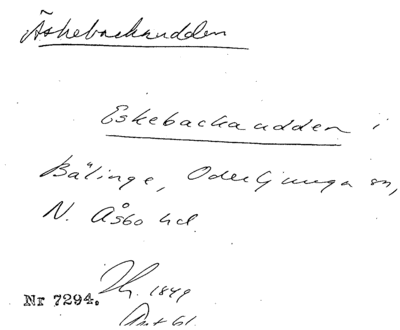 Äskebackaudden
Eskebackaudden i
Bälinge, Oderljunga sn,
N. Åsbo hd.
Nr 7294. 1849